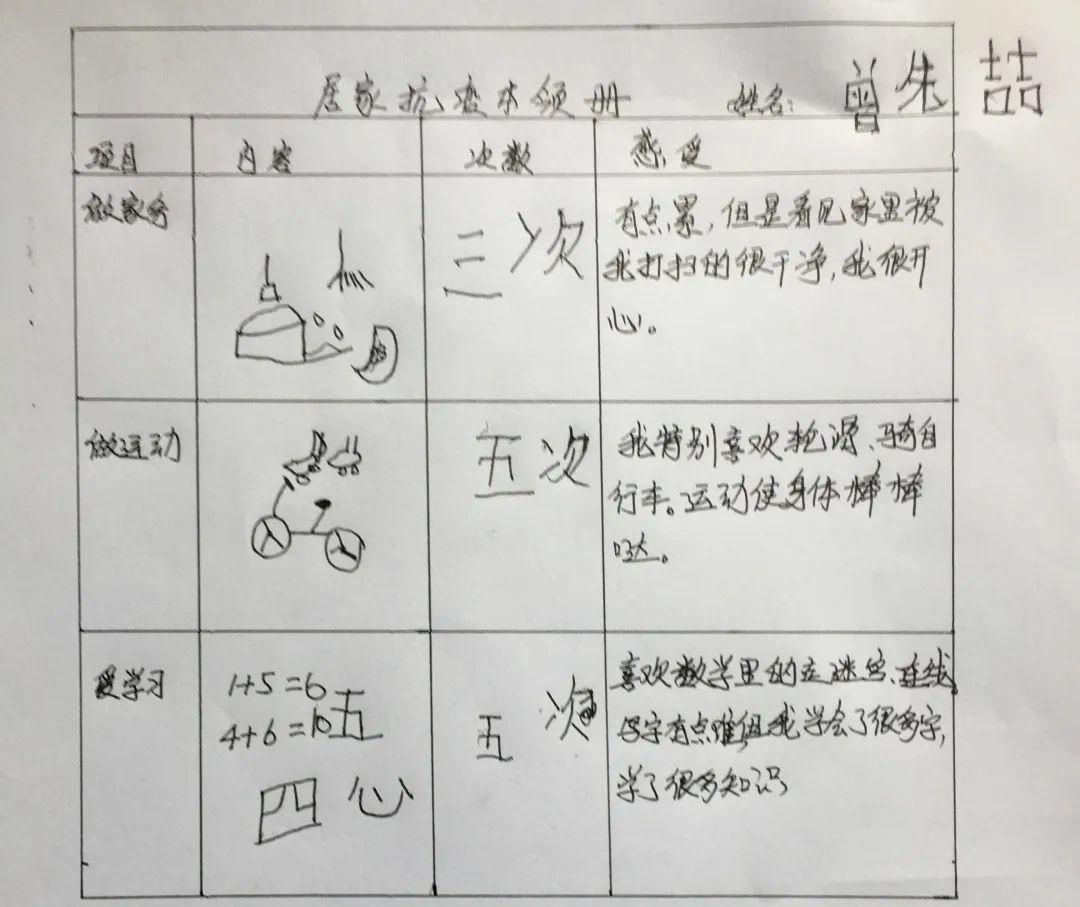 居家抗疫本领册 姓名: 曾朱喆
项目 内容 次数 感受
做家务
三次
有点累,但是看见家里被
我打扫的很干净,我很开
心。
做运动
五次
我特别喜欢轮滑、骑自
行车。运动使身体棒棒
哒。
爱学习
1+5=6
4+6=10 五
四 心
五 次
喜欢数学里的走迷宫、连线,
写字有点难但我学会了很多字,
学了很多知识